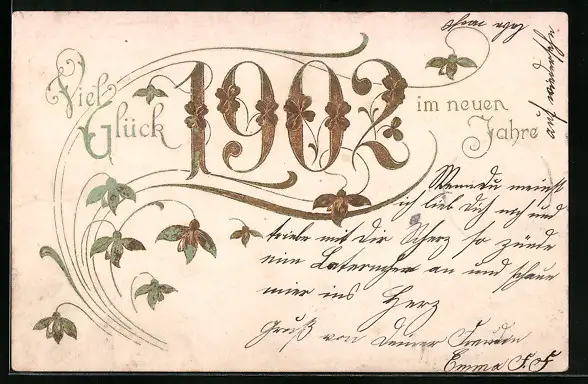 Viel Glück 1902 im neuen Jahre
Wenn du meinst
ich lieb Dich nch und
treibe mit Dir Scherz so zünde
eine Laterncher an und schaue
mier ins Herz
Gruß von deiner Freundin
Emma F. F
auf wiedersehe